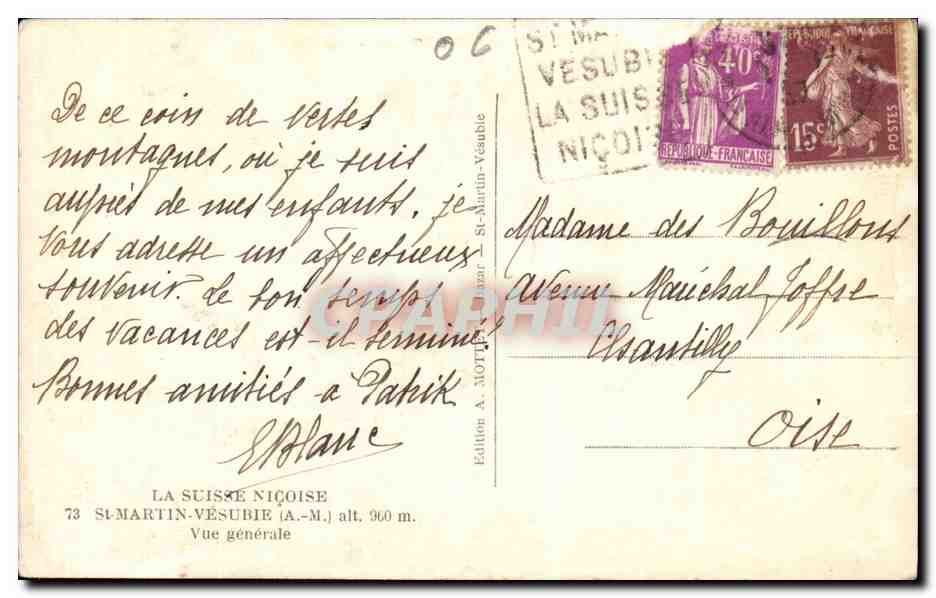 06
ST MA
VESUBI
LA SUIS
NIÇOI
40c
REPUBLIQUE-FRANÇAISE
REPUBLIQUE FRANÇAISE
15c
POSTES
De ce coin de vertes
montagnes, où je suis
auprès de mes enfants, je
vous adresse un affectueux
souvenir. Le bon temps
des vacances est-il terminé!
Bonnes amitiés à Patrik
EBlanc
LA SUISSE NIÇOISE
73 St-MARTIN-VÉSUBIE (A.-M.) alt. 960 m.
Vue générale
Edition A. MOTTE Bazar — St-Martin-Vésubie
CPAPHIL
Madame des Bouillons
avenue Maréchal Joffre
Chantilly
Oise